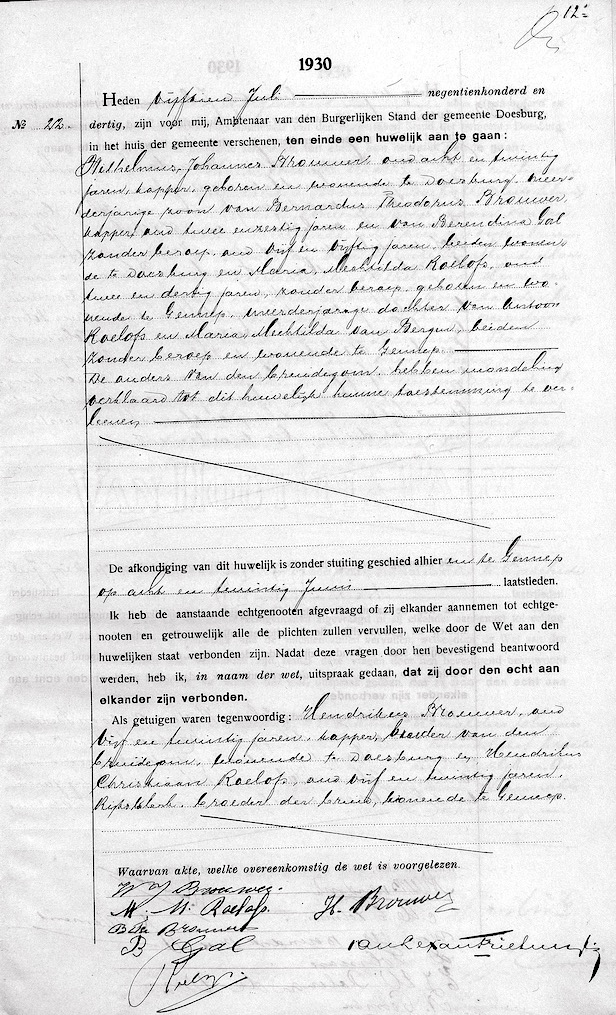 12
1930
Heden vijftien Juli negentienhonderd en
No 22. dertig, zijn voor mij, Ambtenaar van den Burgerlijken Stand der gemeente Doesburg,
in het huis der gemeente verschenen, ten einde een huwelijk aan te gaan:
Wilhelmus Johannes Brouwer oud acht en twintig
jaren, kapper, geboren en wonende te Doesburg, meer-
derjarige zoon van Bernardus Theodorus Brouwer,
kapper, oud twee en zestig jaren en van Berendina Gal
zonder beroep, oud vijf en vijftig jaren, beiden wonen-
de te Doesburg en Maria Mechtilda Roelofs, oud
twee en dertig jaren, zonder beroep, geboren en wo-
nende te Gennep, meerderjarige dochter van Antoon
Roelofs en Maria Mechtilda van Bergen, beiden
zonder beroep en wonende te Gennep.
De ouders van den bruidegom hebben mondeling
verklaard tot dit huwelijk hunne toestemming te ver-
leenen
De afkondiging van dit huwelijk is zonder stuiting geschied alhier en te Gennep
op acht en twintig Juni laatstleden.
Ik heb de aanstaande echtgenooten afgevraagd of zij elkander aannemen tot echtge-
nooten en getrouwelijk alle de plichten zullen vervullen, welke door de Wet aan den
huwelijken staat verbonden zijn. Nadat deze vragen door hen bevestigend beantwoord
werden, heb ik, in naam der wet, uitspraak gedaan, dat zij door den echt aan
elkander zijn verbonden.
Als getuigen waren tegenwoordig: Hendrikus Brouwer, oud
vijf en twintig jaren, kapper, broeder van den
bruidegom, wonende te Doesburg en Hendrikus
Christiaan Roelofs, oud vijf en twintig jaren,
Rijksklerk, broeder der bruid, wonende te Gennep.
Waarvan akte, welke overeenkomstig de wet is voorgelezen.
W J Brouwer.
M. M. Roelofs. H. Brouwer
B Th Brouwer
B Gal